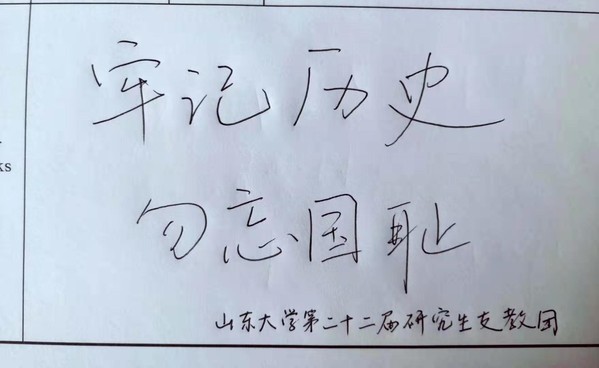 牢记历史
勿忘国耻
山东大学第二十二届研究生支教团
ks